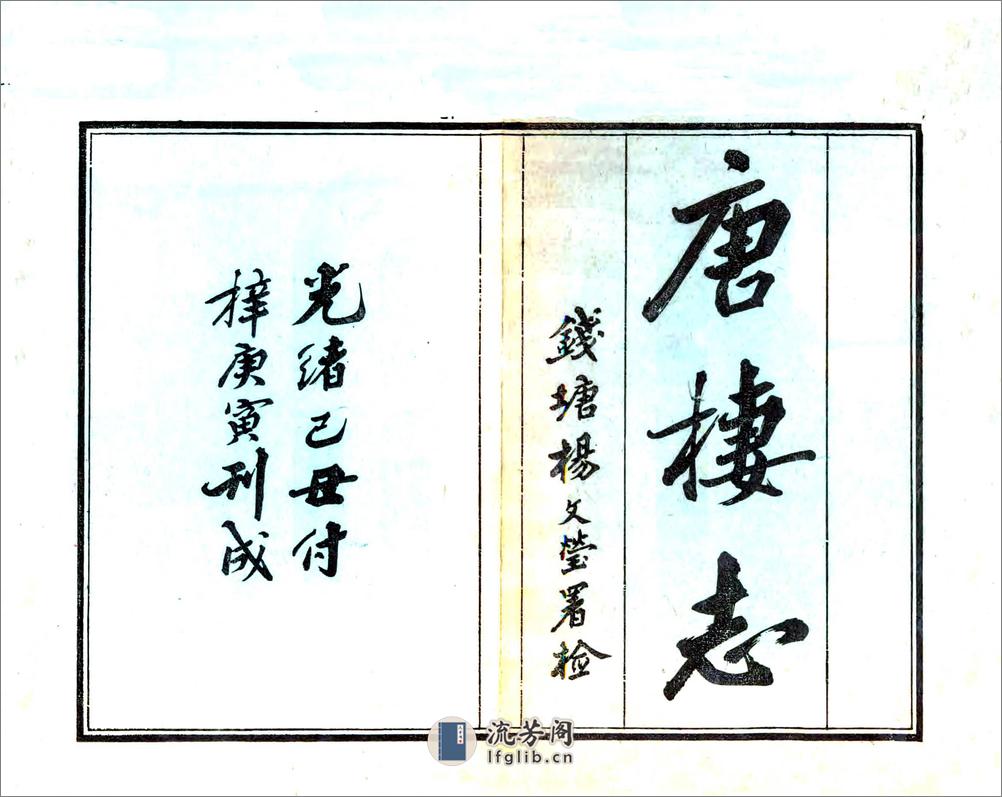 唐棲志
錢塘楊文瑩署檢
光緒己丑付
梓庚寅刊成
流芳阁
lfglib.cn